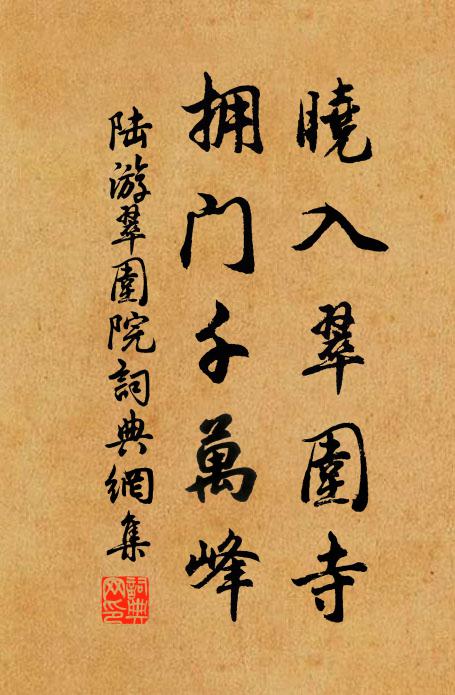 曉入翠圍寺
拥门千萬峰
陆游翠圍院詞典網集
詞典
网印